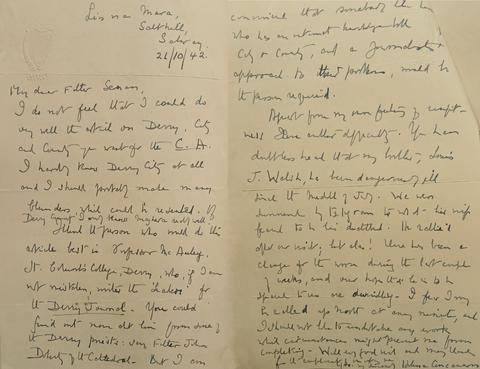 Lis na Mara,
Salthill,
Galway.
21/10/42.
My dear Father Senan,
I do not feel that I could do
very well the article on Derry, City
and County you want for the C. A.
I hardly know Derry City at all
and I should probably make many
blunders, which would be resented. Of
Derry County I don't know
I think the person who would do this
article best is Professor Mc Auley,
St. Columb's College, Derry, who, if I am
not mistaken, writes the leaders for
the Derry Journal. You could
find out more about him from some of
the Derry priests: say Father John
Doherty of the Cathedral. But I am
convinced that somebody like him
who has an intimate knowledge of both
City & County, and a journalist's
approach to their problems, would be
the person required.
Apart from my own feeling of unfit-
ness there is another difficulty. You have
doubtless heard that my brother, Louis
J. Walsh, has been dangerously ill
since the middle of July. We were
summoned by telegram to
feared to be his deathbed. He rallied
after our visit; but alas! there has been a
change for the worse during the last couple
of weeks, and our hope that he is to be
spared to us are dwindling. I fear I may
be called up north at any minute, and
I should not like to undertake any work
which circumstances might prevent me from
completing. With every good wish and many thanks
for the
Helena Concannon